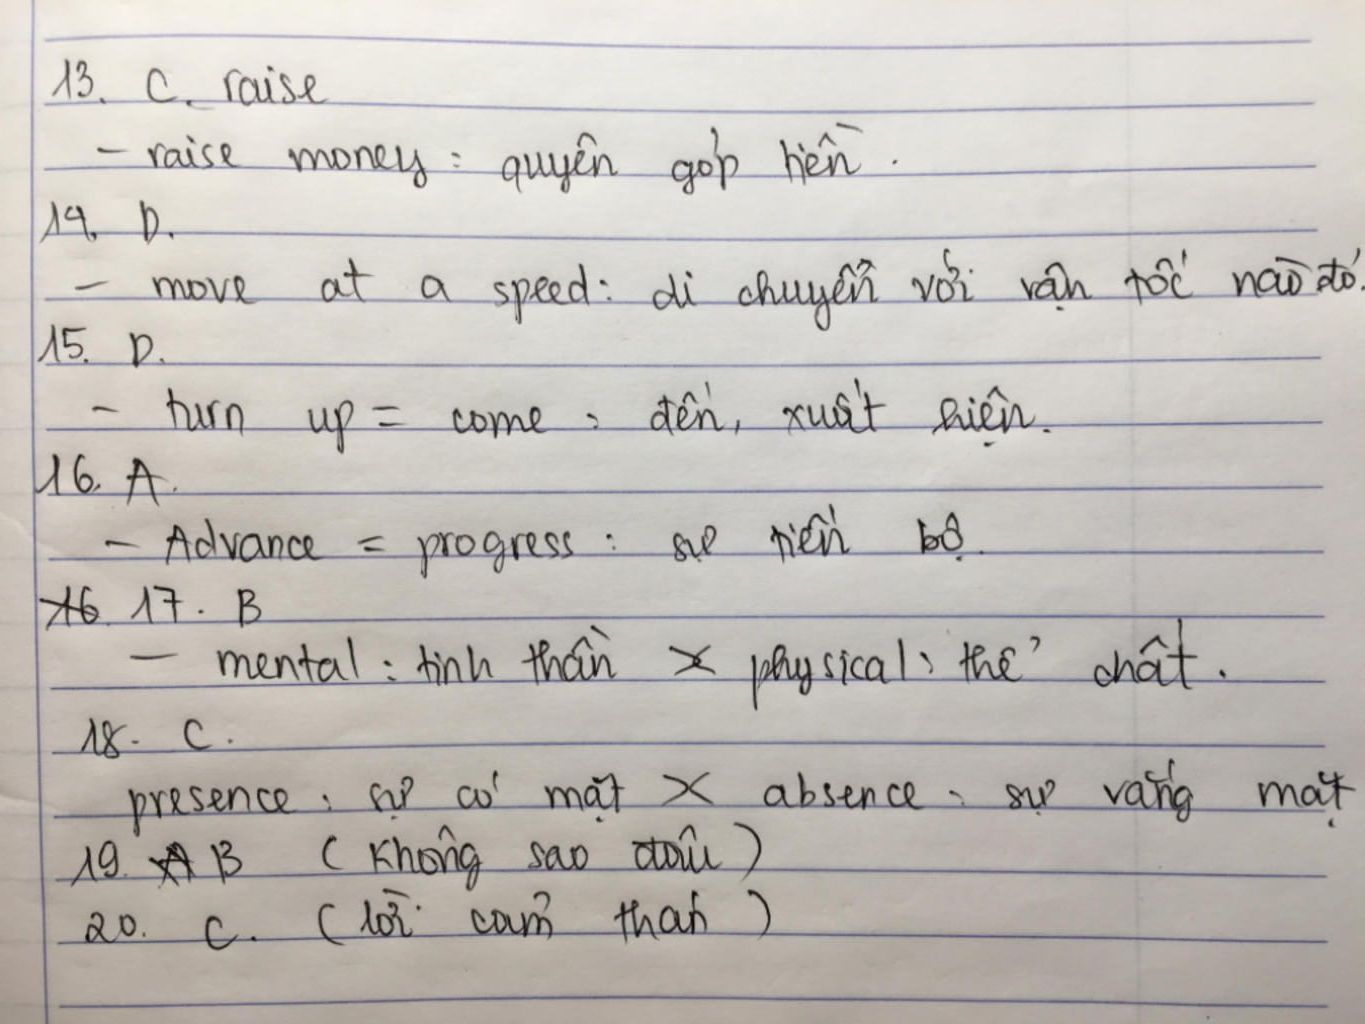 13. C. raise
- raise money : quyên góp tiền.
14. D.
- move at a speed: di chuyển với vận tốc nào đó.
15. D.
- turn up = come : đến, xuất hiện.
16. A.
- Advance = progress : sự tiến bộ.
16. 17. B
- mental : tinh thần X physical : thể chất.
18. C.
presence : sự có mặt X absence : sự vắng mặt
19. A B (Không sao đâu)
20. C. (lời cảm thán)